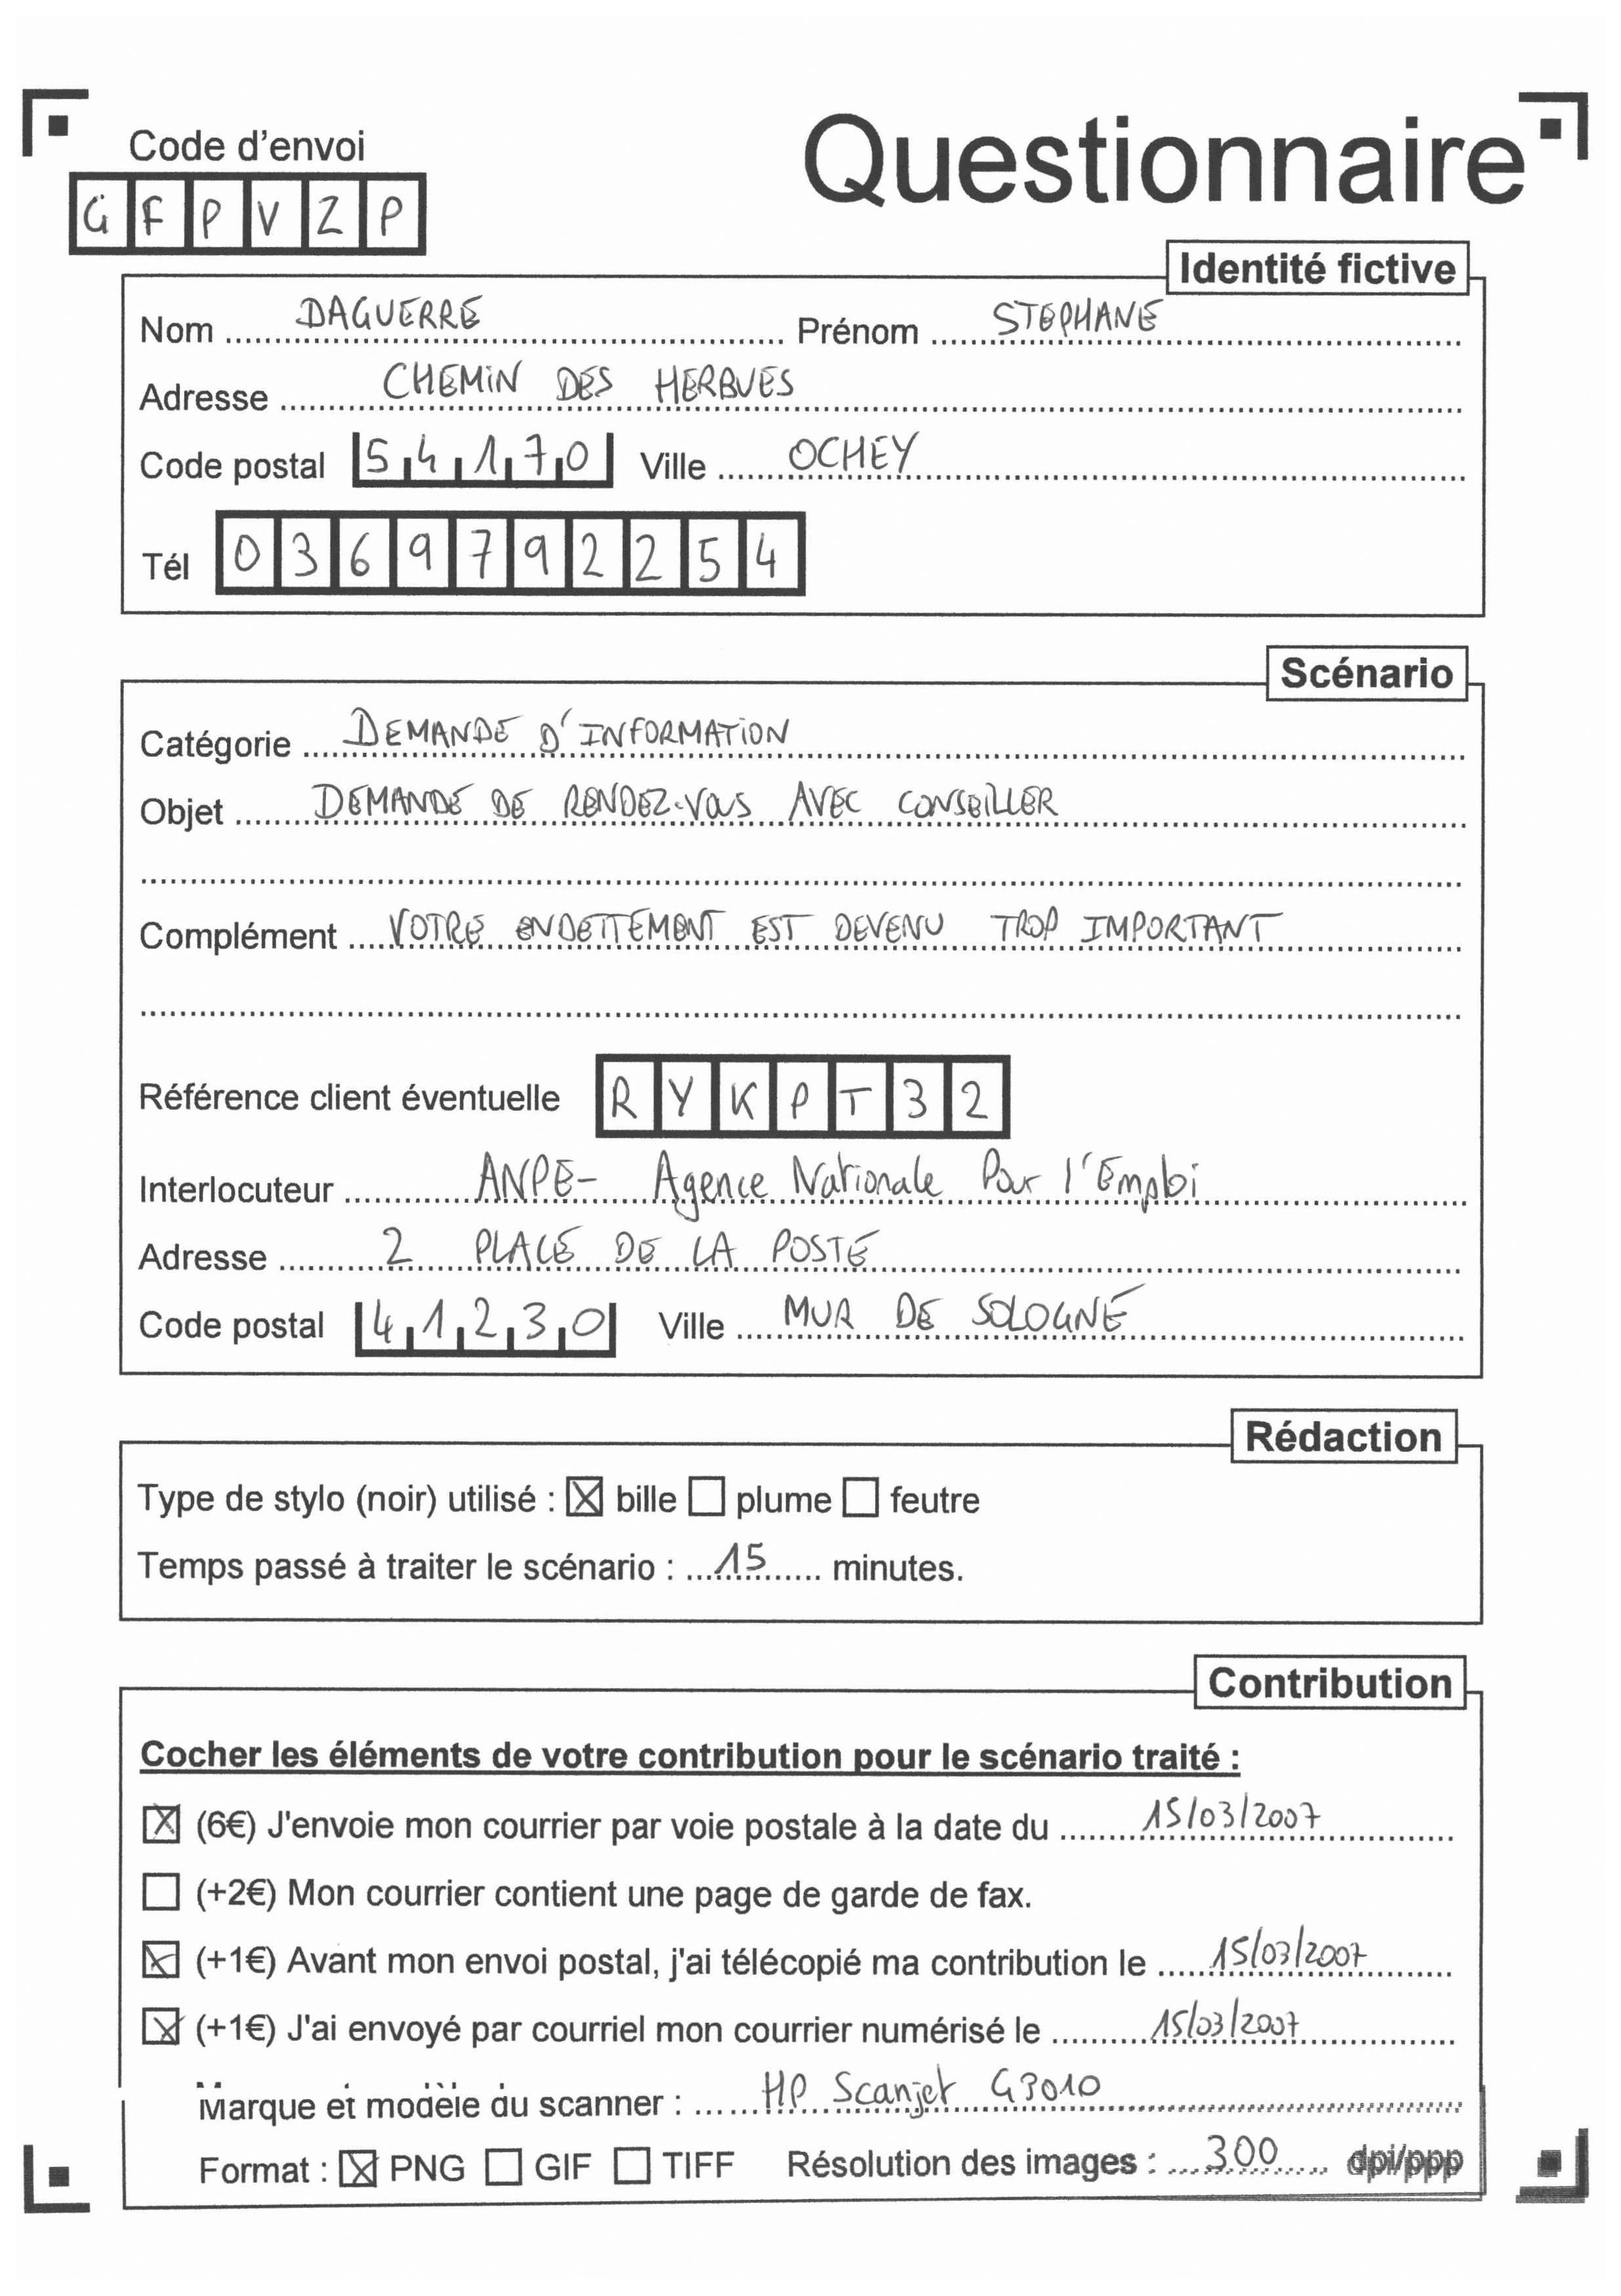 Code d'envoi
Questionnaire
GFPVZP
Identité fictive
Nom DAGUERRE Prénom STEPHANE
Adresse CHEMIN DES HERBUES
Code postal 54170 Ville OCHEY
Tél 0369792254
Scénario
Catégorie DEMANDE D'INFORMATION
Objet DEMANDE DE RENDEZ-VOUS AVEC CONSEILLER
Complément VOTRE ENDETTEMENT EST DEVENU TROP IMPORTANT
Référence client éventuelle RYKPT32
Interlocuteur ANPE- Agence Nationale Pour l'Emploi
Adresse 2 PLACE DE LA POSTE
Code postal 41230 Ville MUR DE SOLOGNE
Rédaction
Type de stylo (noir) utilisé : ☒ bille ☐ plume ☐ feutre
Temps passé à traiter le scénario : 15 minutes.
Contribution
Cocher les éléments de votre contribution pour le scénario traité :
☒ (6€) J'envoie mon courrier par voie postale à la date du 15/03/2007
☐ (+2€) Mon courrier contient une page de garde de fax.
☒ (+1€) Avant mon envoi postal, j'ai télécopié ma contribution le 15/03/2007
☒ (+1€) J'ai envoyé par courriel mon courrier numérisé le 15/03/2007
Marque et modèle du scanner : HP Scanjet G3010
Format : ☒ PNG ☐ GIF ☐ TIFF Résolution des images : 300 dpi/ppp